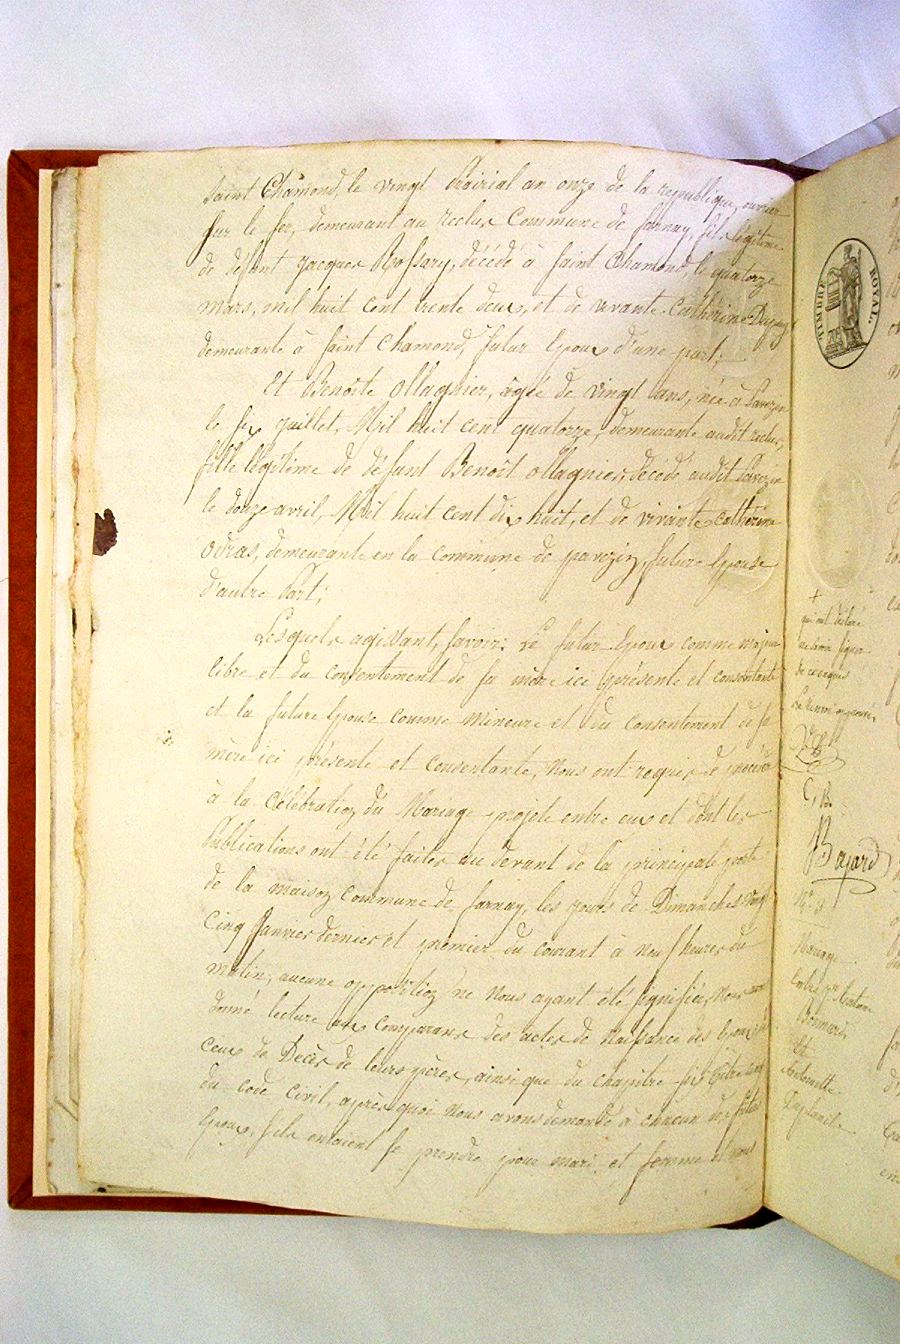 Saint Chamond, le vingt Prairial an onze de la republique, ouvrier
sur le fer, demeurant au reclus Commune de farnay, fils légitime
de défunt Jacques Rossary, décédé à Saint Chamond, le quatorze
mars, mil huit cent trente deux, et de vivante Catherine Dupuy
demeurante à Saint Chamond, futur Epoux d'une part;
Et Benoîte Ollagnier, agée de vingt ans, née à Pavezin
le six juillet, Mil huit cent quatorze, demeurante audit reclus,
fille légitime de défunt Benoît Ollagnier, décédé audit Pavezin
le douze avril, Mil huit cent dix huit, et de vivante Catherine
Odras, demeurante en la commune de pavezin, future Epouse
d'autre Part;
Lesquels agissant, savoir: Le futur Epoux comme majeur
libre et du consentement de sa mère ici présente et consentante
et la future Epouse comme Mineure et du Consentement de sa
mère ici présente et consentante, Nous ont requis de procéder
à la célébration du Mariage projeté entre eux et dont les
Publications ont été faites au devant de la principale porte
de la maison Commune de farnay, les jours de Dimanches vingt
Cinq Janvier dernier et premier du courant à neuf heures du
matin; aucune opposition ne Nous ayant été signifiée, Nous avons
donné lecture aux Comparans des actes de Naissance des Epoux, de
ceux de Décès de leurs pères, ainsi que du chapitre six, titre cinq
du code civil, après quoi Nous avons demandé à chacun des futurs
Epoux, s'ils entendent se prendre pour mari et femme et nous
TIMBRE ROYAL.
+
qui ont déclaré
ne savoir signer
de ce requis
Le Renvoi approuvé
C, B.
Bayard
N° 3
Mariage
Entre Antoine
Bonnard
Et
Antoinette